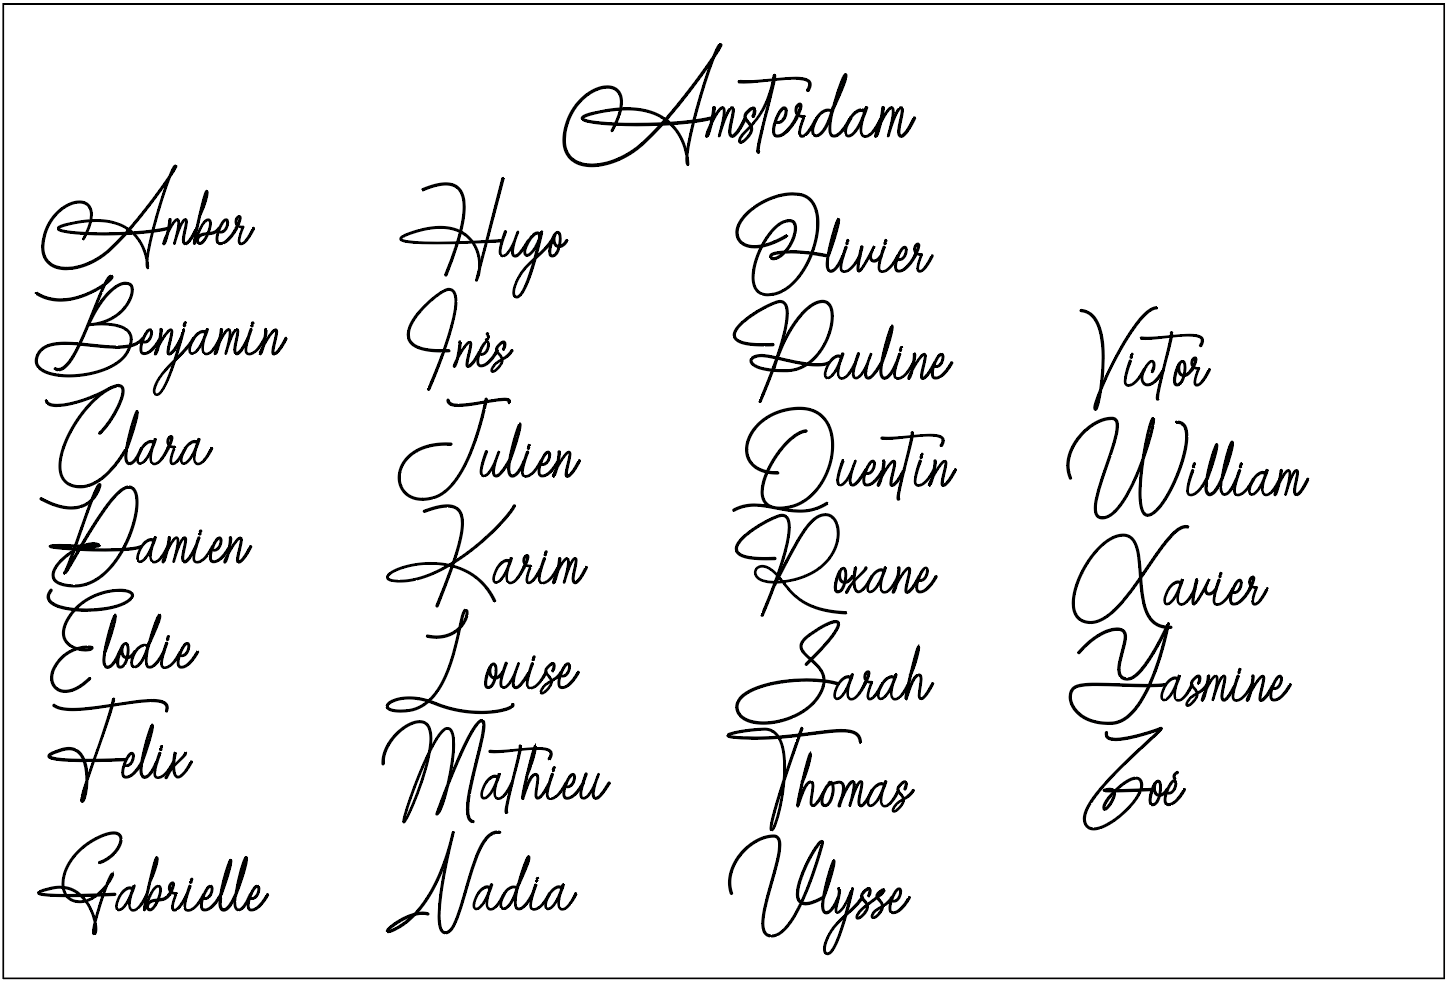 Amsterdam
Amber
Benjamin
Clara
Damien
Elodie
Felix
Gabrielle
Hugo
Inès
Julien
Karim
Louise
Mathieu
Nadia
Olivier
Pauline
Quentin
Roxane
Sarah
Thomas
Ulysse
Victor
William
Xavier
Yasmine
Zoé